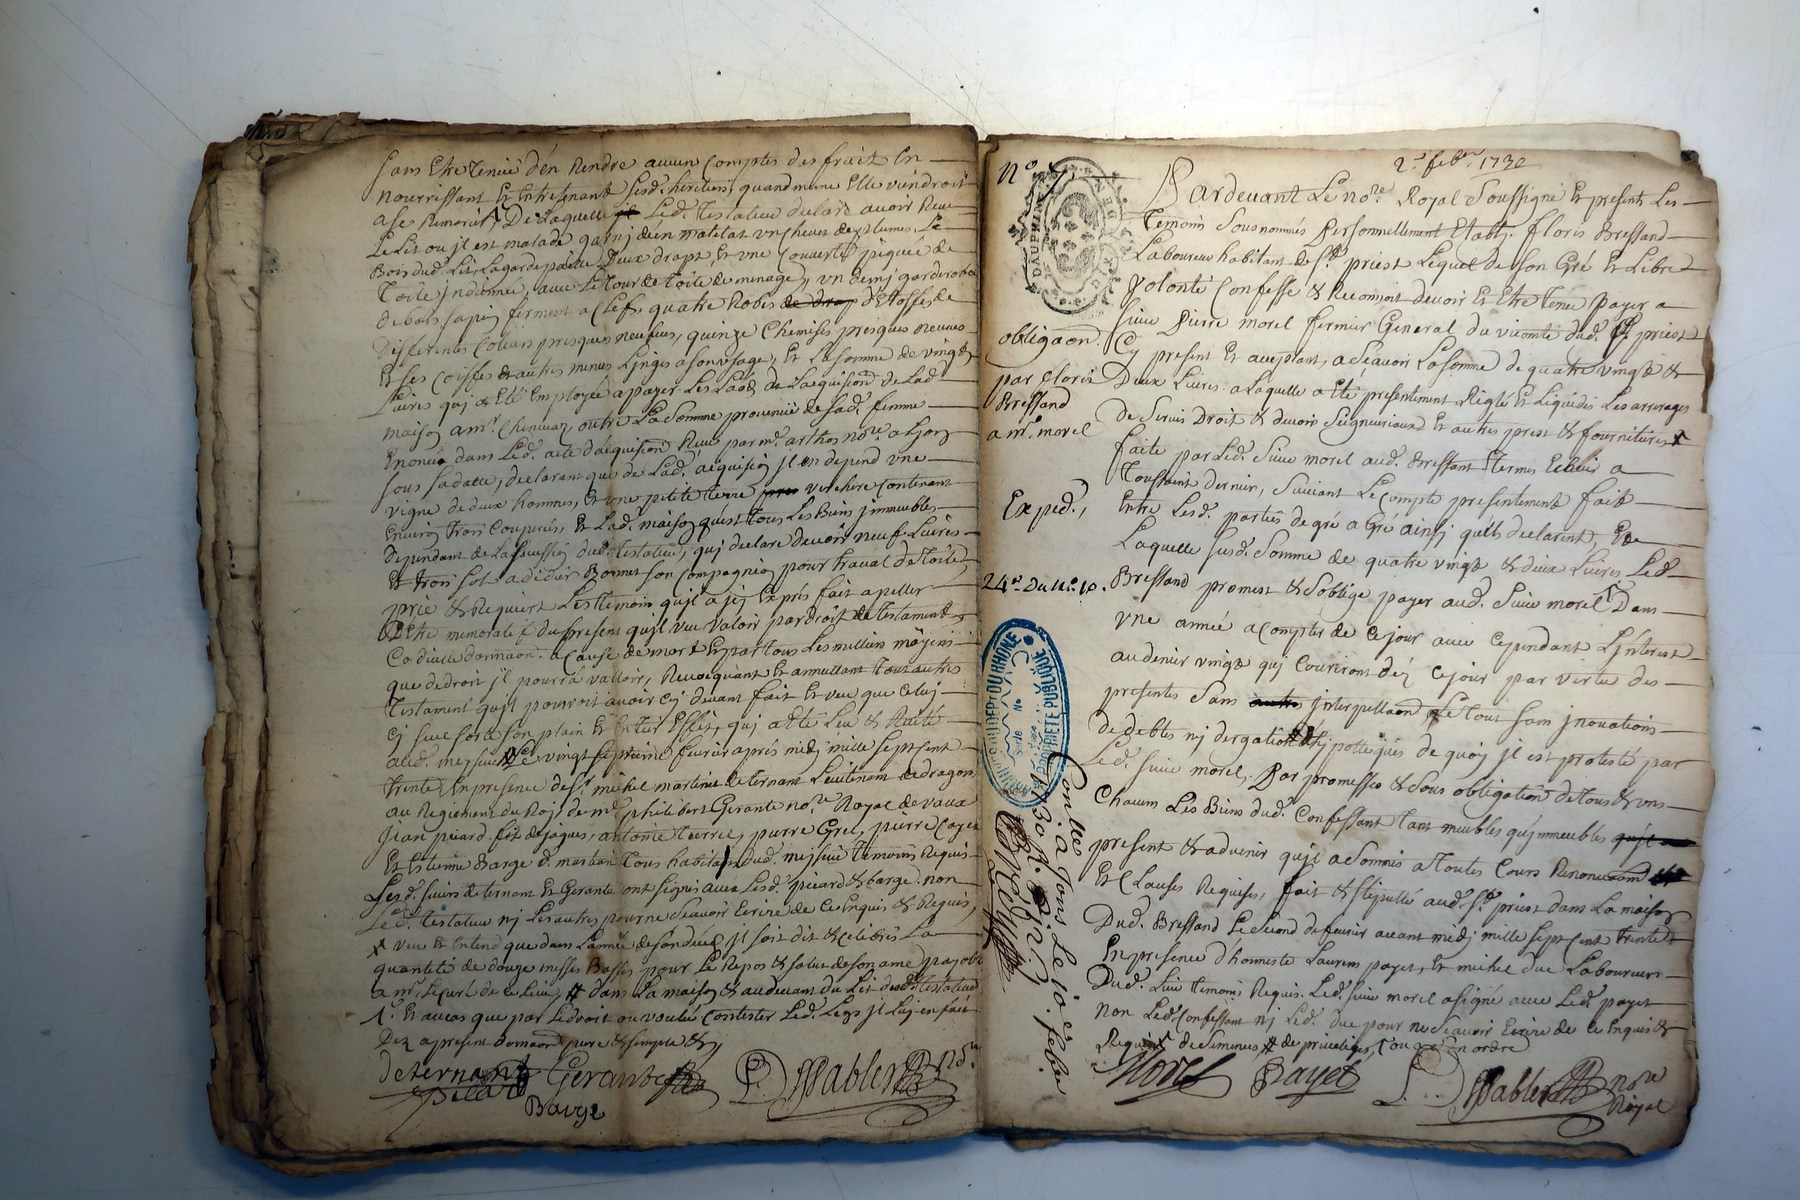 sans Etre tenüe d'en Rendre aucun Comptes des frait En
nourrissant Et Entretenant Sesd. heritiers, quand mesme Elle viendroit
a se Remarier, De laquelle Led. Testateur declare avoir Reçu
Le Lit ou il est malade garnj d'un matelat un Chevet de plumes, Le
Bois dud. Lit, La garde paille, Deux drapt Et une Couverte piquée de
Toile jndienne, avec Le tour de toile de menage, un demj garderobe
de bois sapin fermant a Clef, quatre Robes d'Etoffes de
Differentes Coulurs presques neufues, quinze Chemises presques neuves
Et ses Coiffes & autres menus Linges a son usage, Et La Somme de vingt
Livres quj a Eté Employée a payer Les Laods de L'acquision de Lad.
maison a mr. Chenevaz, outre La Somme provenüe de Sad. femme
Enoncée dans Led. acte d'acquision Reçu par me. arthos nore. a Lyon
sous sa datte, declarant que de Lad. acquision jl en depend une
vigne de deux hommes, Et une petite terre verchere Contenant
Environ trois Couperées, Et Lad. maison, quest tous Les Biens jmmeubles
Dependant de La Succession dud. testateur, quj declare devoir neuf Livres
Et trois sols a didier Bonnet son Compagnon pour travail de toile
prie & Requiert Les temoins qu'jl a jcy Exprés fait apeller
D'Etre memoratif du present qu'jl veu valoir par droit de testament
Codicille donnaon. a Cause de mort Et par tous Les meillieurs moyens
que de droit jl pourra valloir, Revocquant Et annullant tout autres
testament qu'jl pourroit avoir Cy devant fait Et veu que Celuj
Cy sive sorte son plain Et Entier Effet, quj a été Leu & Reité
aud. meysieu Le vingt septieme fevrier aprés midj mille sept cent
trente, En presence de sr. michel martin de ternant Lieutenant de dragon
au Regiement du Roj de me. philibert Gerante nore. Royal de vaux
Jean picard fils de jaques, antoine tierre, pierre Grel, pierre Cayer
Et Estienne Barge d. martian tous habitans dud. meysieu temoins Requis
Lesd. sieurs de ternant Et Gerante ont signés avec Lesd. picard & barge non
Led. testateur nj Les autres pour ne Sçavoir Ecrire de Ce Enquis & Requis,
veu Et Entend que dans L'année de son décéd jl soit dit & Celebrés La
quantité de douze messes Basses pour Le Repos & salut de son ame payable
a mr. Le Curé de Ce Lieu, dans La maison & au devant du Lit dud. testateur
Et au cas que par Led. voit ou voulu Contester Led. Legs jl Luj en fait
Dez a present donnaon pure & simple &
deternant Gerante
picard
Barge
Rabler nore.
No. 7
2e. febr. 1730
DAUPHINE
GEN
Pardevant Le nore. Royal Soussigné Et presents Les
Temoins Sousnommés Personnellement Etablj floris Bressand
Laboureur habitant de St. priest Lequel de son Gré Et Libre
Volonté Confesse & Reconnoit devoir Et Etre tenu payer a
sieur Pierre morel fermier General du vicomté dud. St. priest
obligaon.
par floris
Bressand
a mr. morel
Exped.,
24s. Du No. 10.
Cy present Et acceptant, a Sçavoir La Somme de quatre vingt &
Deux Livres a Laquelle a Eté presentement Reglé Et Liquidés Les arrerages
de Servis Droit & devoir Seigneuriaux Et autres prest & fournitures
faite par Led. sieur morel aud. Bressant termes Echeü a
Toussaint dernier, Suivant Le Compte presentement fait
Entre Lesd. parties de gré a Gré ainsj qu'ils declarent, De
Laquelle susd. Somme de quatre vingt & deux Livres Led.
Bressand promest & s'oblige payer aud. sieur morel Dans
une année a Compter de Ce jour avec Cependant L'jnterest
au denier vingt quj Couriront déz Ce jour par vertu des
presentes Sans jnterpellaon Le tout sans jnovations
de debtes nj derogation d'hypotteques de quoj jl est protesté par
Led. sieur morel, Par promesses & Sous obligation de tous & uns
Chacun Les Biens dud. Confessant tant meubles qu'jmmeubles
present & advenir qu'jl a Soumis a toutes Cours Renonciaons
Et Clauses Requises, fait & stipullé aud. St. priest dans La maison
Dud. Bressand Le Second de fevrier avant midj mille sept cent trente
En presence d'honneste Laurens payet, Et michel duc Laboureurs
Dud. Lieu temoins Requis. Led. sieur morel a signé avec Led. payet
non Led. Confessant nj Led. duc pour ne Sçavoir Ecrire de Ce Enquis &
Requis
Morel Payet
Rabler nore
Royal
DEPT DU RHONE
Serie No
PROPRIETE PUBLIQUE
Conllée. a Jons Le 10e. febr.
1730